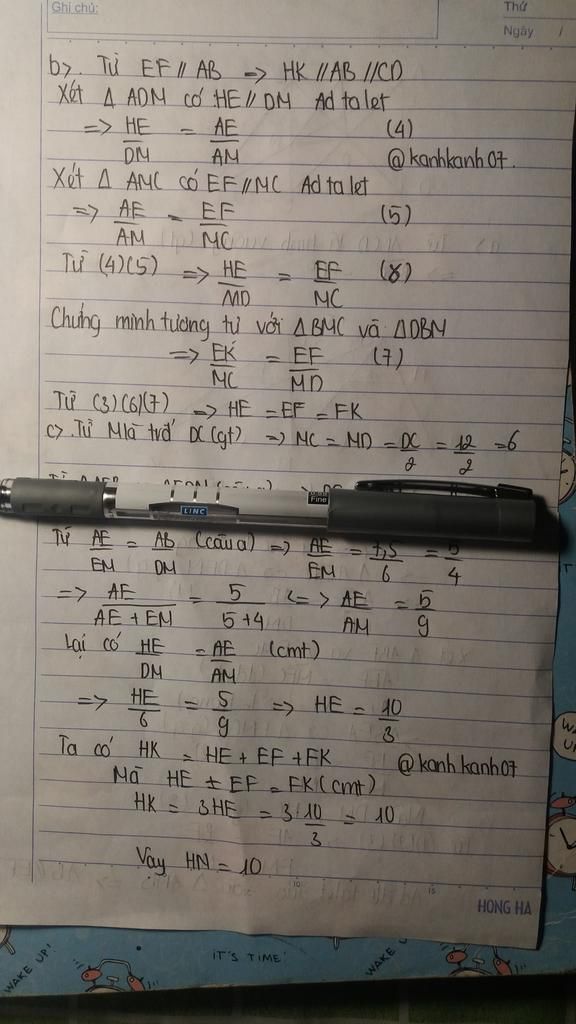 Ghi chú:
Thứ
Ngày /
b>. Từ EF // AB => HK // AB // CD
Xét Δ ADM có HE // DM Ad talet
=> HE/DM = AE/AM (4)
@kanhkanh07.
Xét Δ AMC có EF // MC Ad talet
=> AE/AM = EF/MC (5)
Từ (4)(5) => HE/MD = EF/MC (6)
Chứng minh tương tự với ΔBMC và ΔDBM
=> EK/MC = EF/MD (7)
Từ (3)(6)(7) => HE = EF = FK
c>. Từ M là trđ DC (gt) => MC = MD = DC/2 = 12/2 = 6
LINC
Fine
Từ AE/EM = AB/DM (câu a) => AE/EM = 7,5/6 = 5/4
=> AE/AE + EM = 5/5+4 <=> AE/AM = 5/9
Lại có HE/DM = AE/AM (cmt)
=> HE/6 = 5/9 => HE = 10/3
Ta có HK = HE + EF + FK
@kanhkanh07
Mà HE = EF = FK (cmt)
HK = 3HE = 3.10/3 = 10
Vậy HN = 10
10
15
HONG HA
WAKE UP!
IT'S TIME!
WAKE